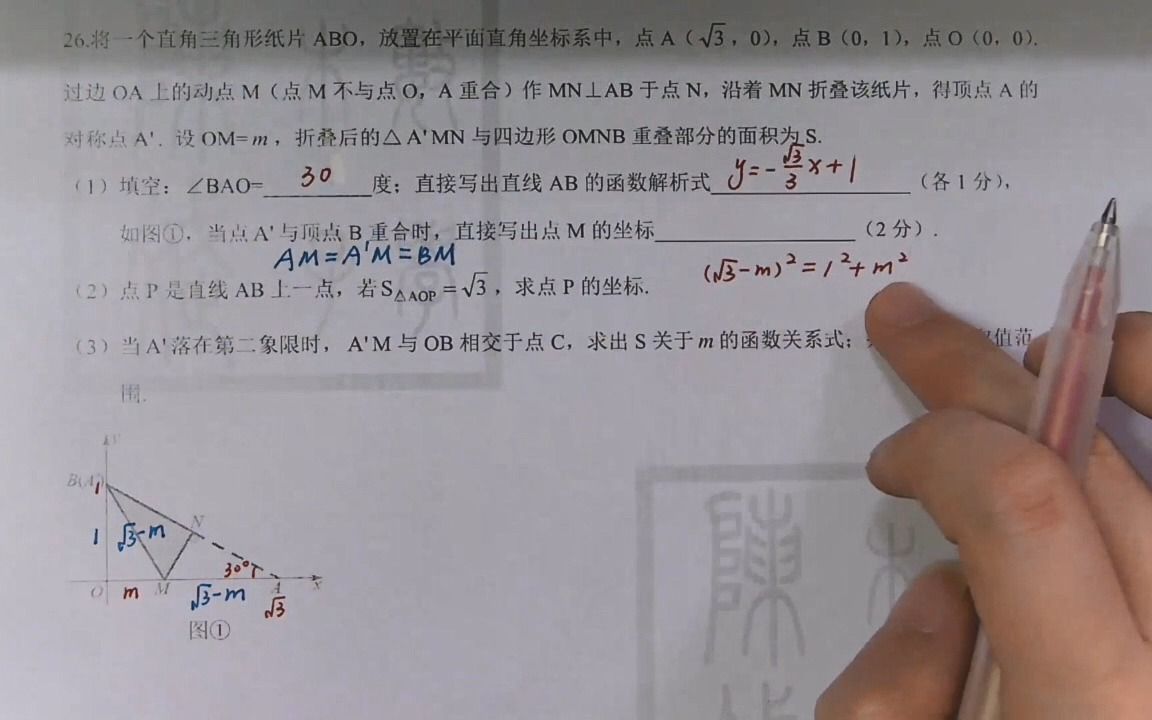 26.将一个直角三角形纸片 ABO，放置在平面直角坐标系中，点 A（√3，0），点 B（0，1），点 O（0，0）.
过边 OA 上的动点 M（点 M 不与点 O，A 重合）作 MN⊥AB 于点 N，沿着 MN 折叠该纸片，得顶点 A 的
对称点 A'. 设 OM=m，折叠后的△A'MN 与四边形 OMNB 重叠部分的面积为 S.
（1）填空：∠BAO= 30 度；直接写出直线 AB 的函数解析式 y=-√3/3x+1 （各 1 分），
如图①，当点 A' 与顶点 B 重合时，直接写出点 M 的坐标 （2 分）.
AM=A'M=BM
(√3-m)²=1²+m²
（2）点 P 是直线 AB 上一点，若 S△AOP=√3，求点 P 的坐标.
（3）当 A' 落在第二象限时，A'M 与 OB 相交于点 C，求出 S 关于 m 的函数关系式； 取值范
围.
y
B(A') 1
N
1 √3-m
30°
O m M √3-m A x
√3
图①
陳